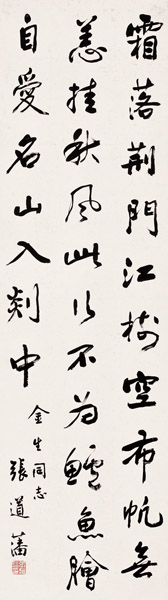 霜落荆門江樹空布帆無
恙挂秋風此行不為鱸魚膾
自愛名山入剡中
金生同志
張道藩